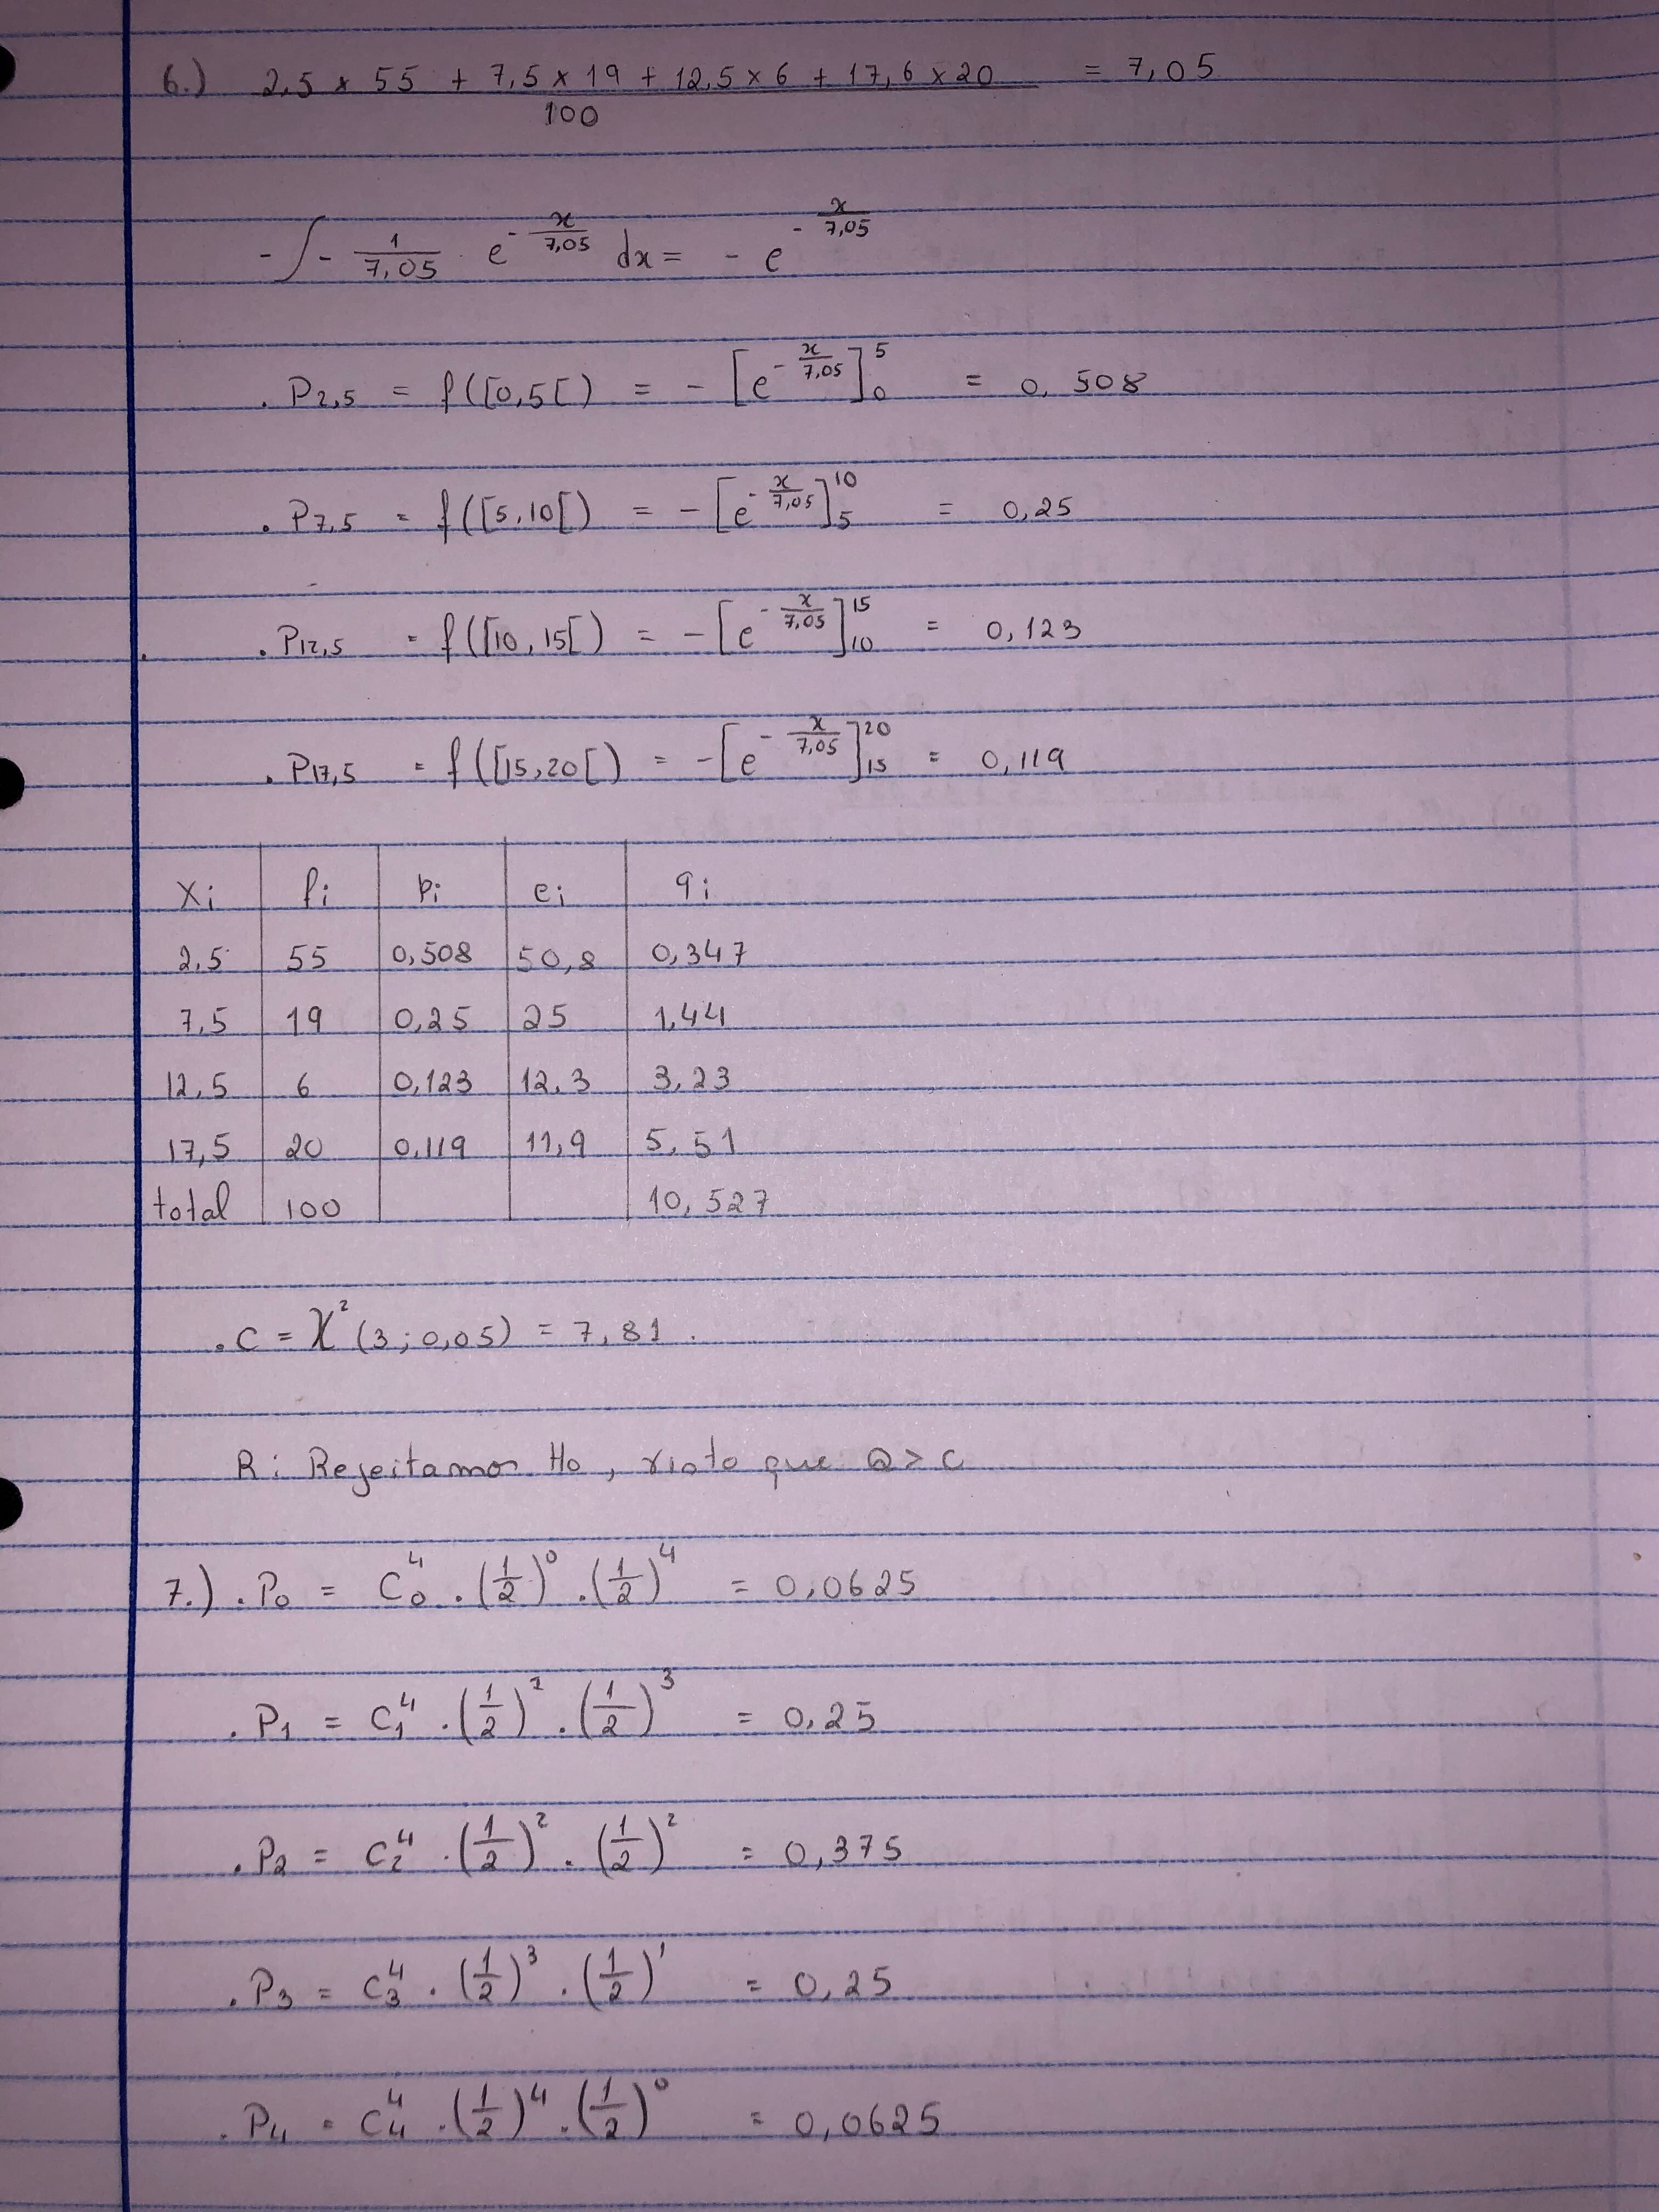 6.) 2,5 × 55 + 7,5 × 19 + 12,5 × 6 + 17,6 × 20 = 7,05
100
- ∫ - 1/7,05 e^(-x/7,05) dx = - e^(-x/7,05)
. P2,5 = f([0,5[) = - [e^(-x/7,05)]_0^5 = 0,508
. P7,5 = f([5,10[) = - [e^(-x/7,05)]_5^10 = 0,25
. P12,5 = f([10,15[) = - [e^(-x/7,05)]_10^15 = 0,123
. P17,5 = f([15,20[) = - [e^(-x/7,05)]_15^20 = 0,119
Xi fi pi ei qi
2,5 55 0,508 50,8 0,347
7,5 19 0,25 25 1,44
12,5 6 0,123 12,3 3,23
17,5 20 0,119 11,9 5,51
total 100 10,527
. C = χ² (3; 0,05) = 7,81.
R: Rejeitamos Ho, visto que Q > C
7.) . P0 = C_0^4 . (1/2)^0 . (1/2)^4 = 0,0625
. P1 = C_1^4 . (1/2)^1 . (1/2)^3 = 0,25
. P2 = C_2^4 . (1/2)^2 . (1/2)^2 = 0,375
. P3 = C_3^4 . (1/2)^3 . (1/2)^1 = 0,25
. P4 = C_4^4 . (1/2)^4 . (1/2)^0 = 0,0625